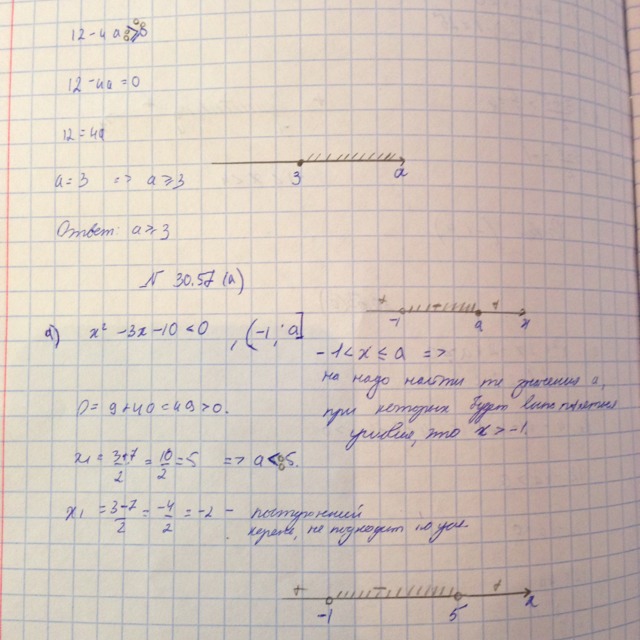 12-4a
12-4a=0
12=4a
a=3 => a≥3
3 a
Ответ: a≥3
N 30.57 (а)
+ - +
-1 a x
а) x² -3x-10<0 , (-1; a]
-1<x≤a =>
на надо найти те значения a,
при которых будет выполняться
условие, что x>-1.
D=9+40=49>0.
x₁ = 3+7/2 = 10/2 = 5 => a<5.
x₁ = 3-7/2 = -4/2 = -2 - посторонний
корень, не подходит
+ - +
-1 5 x